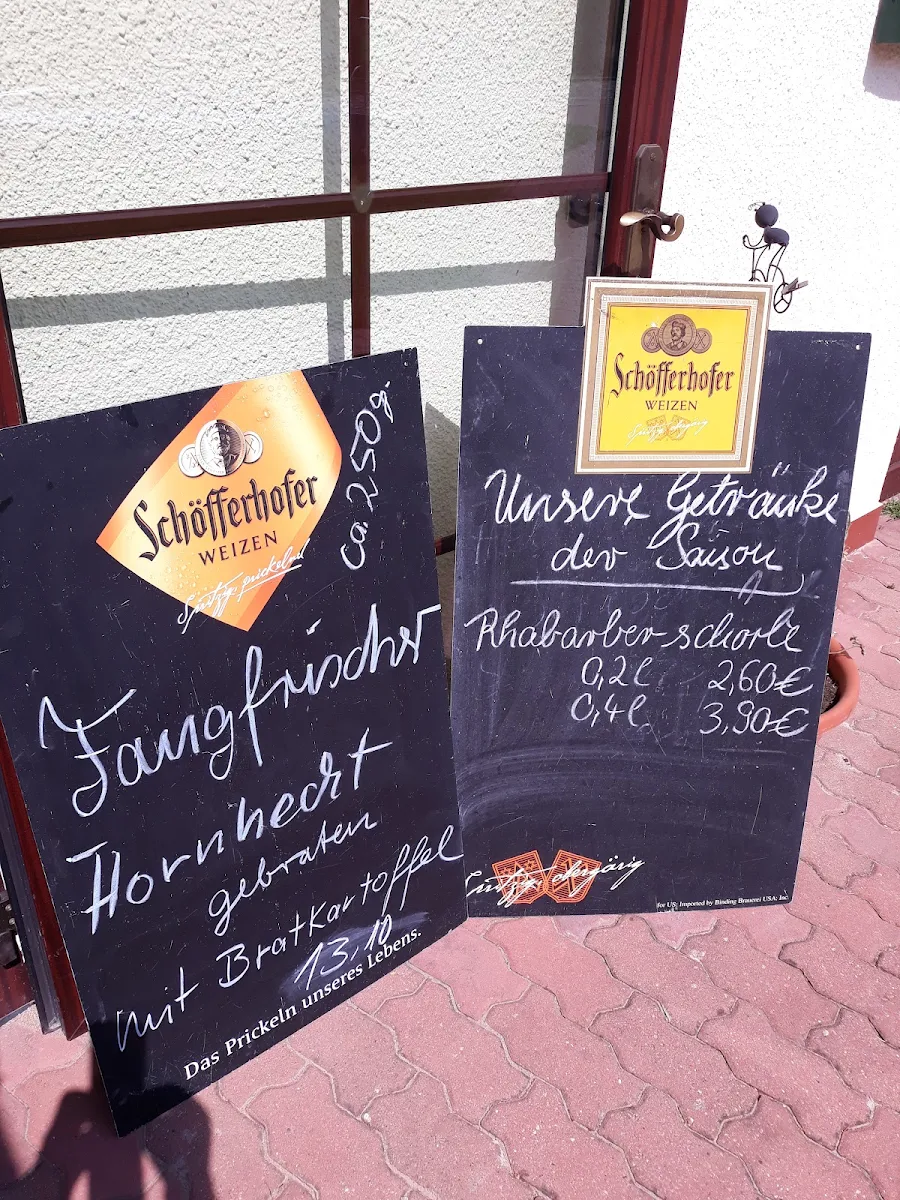 Schöfferhofer
WEIZEN
Spritzig. prickelnd
ca. 250g.
Fangfrischer
Hornhecht
gebraten
mit Bratkartoffel
13,10
Das Prickeln unseres Lebens.
Schöfferhofer
WEIZEN
Unsere Getränke
der Saison
Rhabarber-schorle
0,2l 2,60€
0,4l 3,90€
obergärig
for US: Imported by Binding Brauerei USA; Inc.